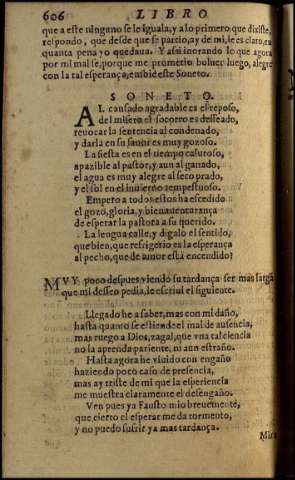 606 LIBRO
que a este ninguno se le iguala, y a lo primero que dixiste,
respondo, que desde que se partio, ay de mi, le es claro, en
quanta pena yo quedaua. Y assi inorando lo que agora
por mi mal se, porque me prometio boluer luego, alegre
con la tal esperança, embié este Soneto.
SONETO.
AL cansado agradable es el reposo,
del misero el socorro es desseado,
reuocar la sentencia al condenado,
y darla en su fauor es muy gozoso.
La siesta es en el tiempo caluroso,
apazible al pastor, y aun al ganado,
el agua es muy alegre al seco prado,
y el sol en el inuierno tempestuoso.
Empero a todos estos ha escedido
el gozo, gloria, y bienauenturança
de esperar la pastora a su querido.
La lengua calle, y digalo el sentido,
que bien, que refrigerio es la esperança
al pecho, que de amor está encendido?
MVY poco despues viendo su tardança ser mas larga
que mi desseo pedia, le escriui el siguiente.
Llegado he a saber, mas con mi daño,
hasta quanto se estiende el mal de ausencia,
mas ruego a Dios, zagal, que vna tal ciencia
no la aprenda pariente, ni aun estraño.
Hasta agora he viuido con engaño
haziendo poco caso de presencia,
mas ay triste de mi que la esperiencia
me muestra claramente el desengaño.
Ven pues ya Fausto mio breuemente,
que cierto el esperar me da tormento,
y no puedo sufrir ya mas tardança.
Mira